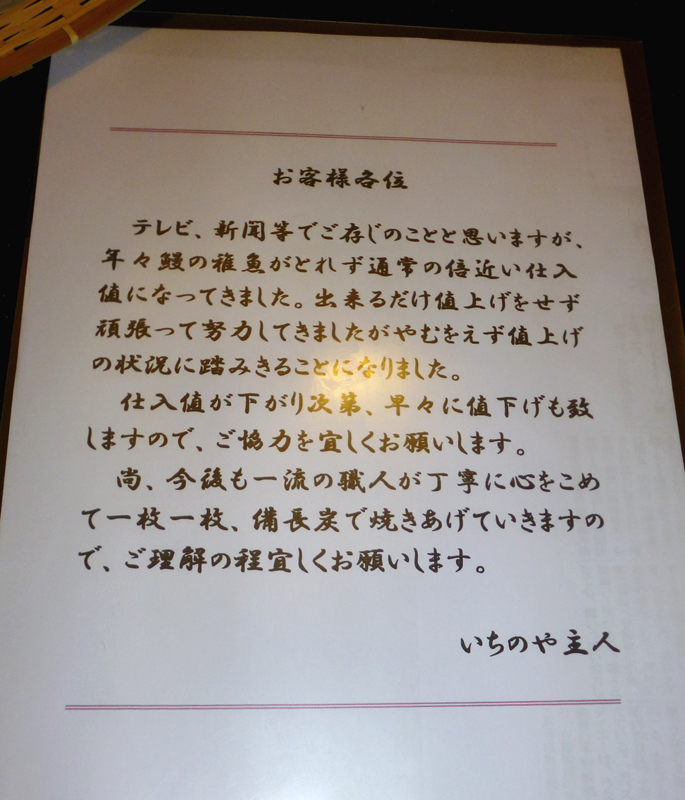 お客様各位
テレビ、新聞等でご存じのことと思いますが、
年々鰻の稚魚がとれず通常の倍近い仕入
値になってきました。出来るだけ値上げをせず
頑張って努力してきましたがやむをえず値上げ
の状況に踏みきることになりました。
仕入値が下がり次第、早々に値下げも致
しますので、ご協力を宜しくお願いします。
尚、今後も一流の職人が丁寧に心をこめ
て一枚一枚、備長炭で焼きあげていきますの
で、ご理解の程宜しくお願いします。
いちのや主人